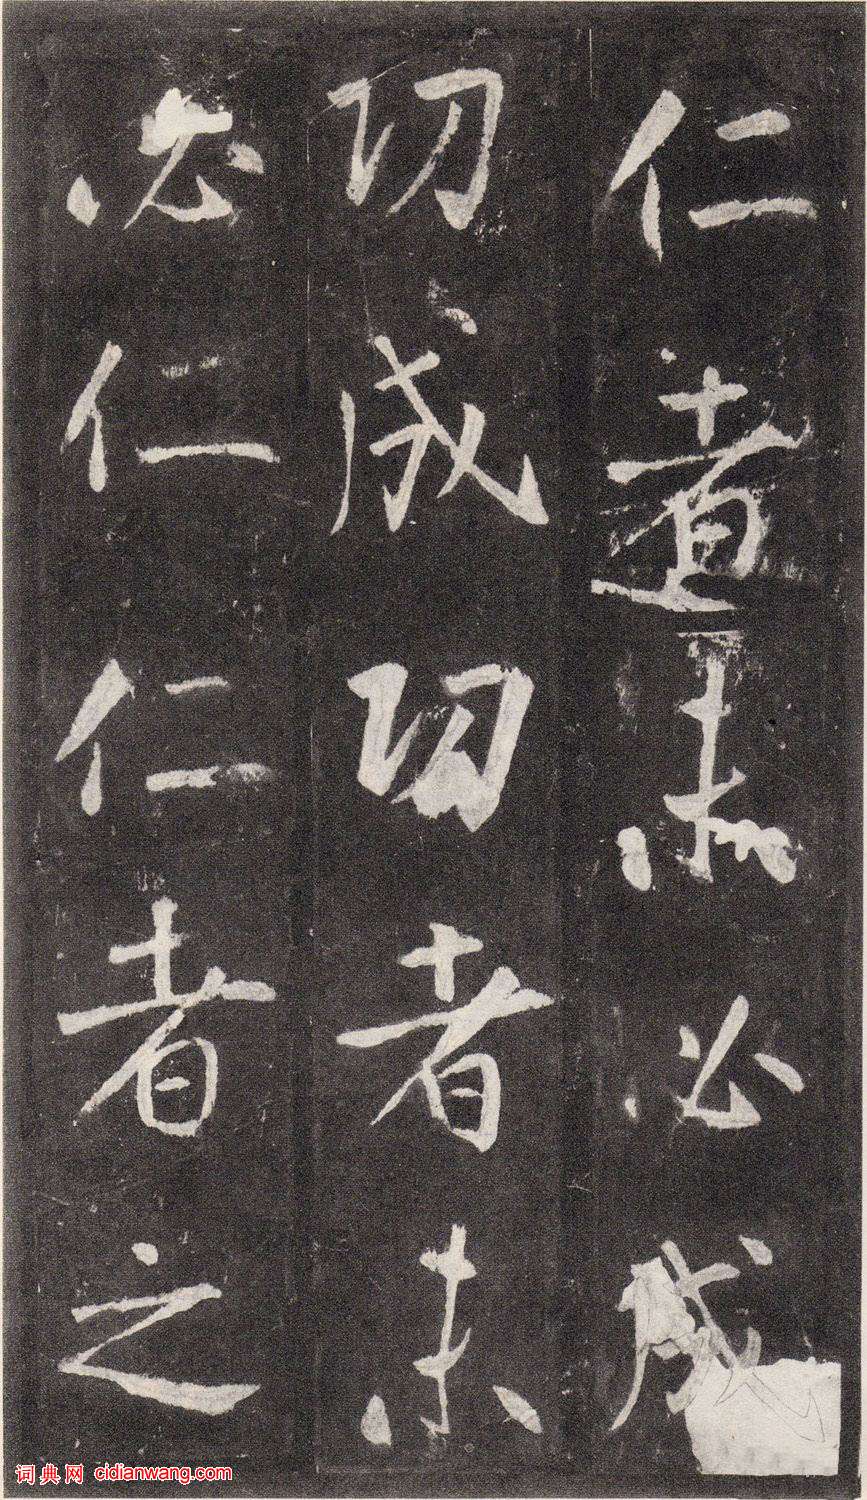 仁者未必成
功成功者未
必仁仁者之
词典网 cidianwang.com